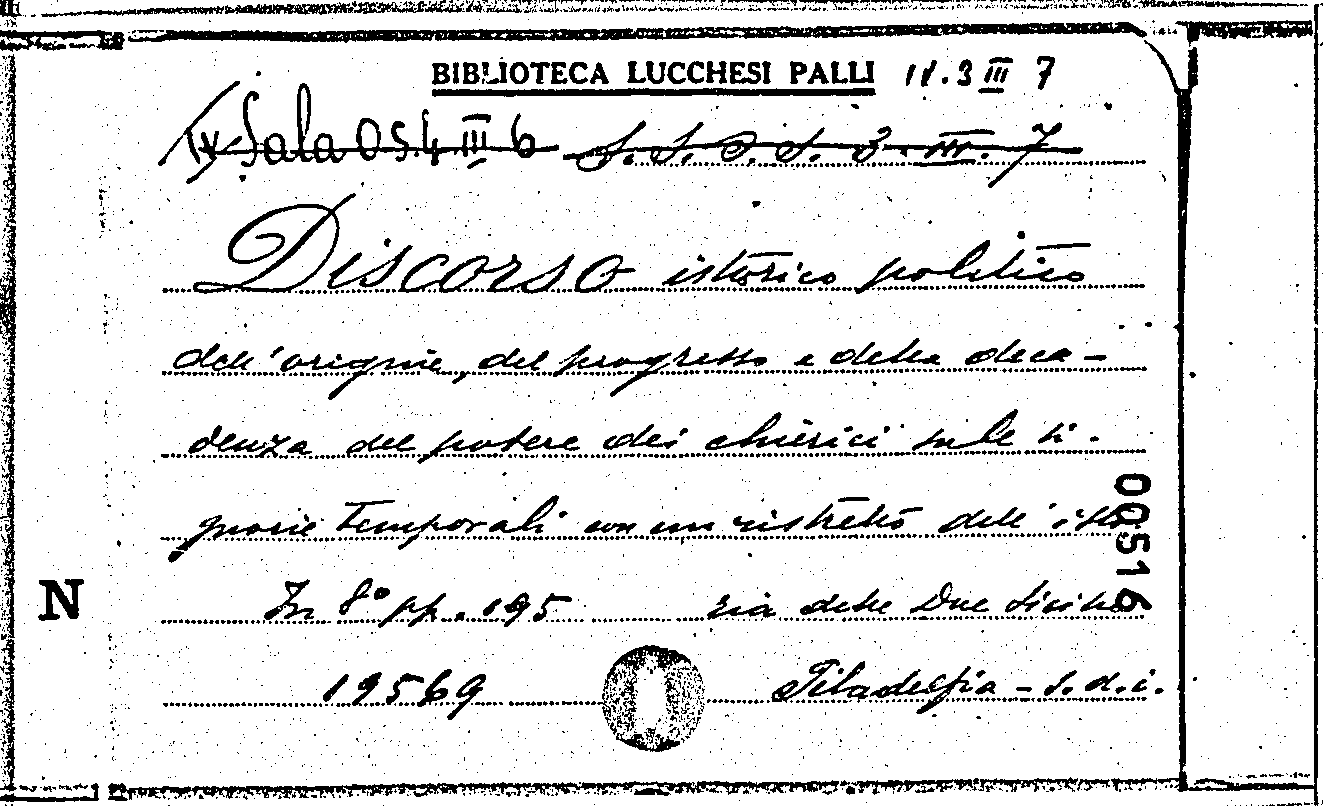 BIBLIOTECA LUCCHESI PALLI IV.3 III 7
IV Sala 05.4 III 6 S. S. D. S. 3. III. 7
Discorso istorico politico
dell'origine, del progresso e della deca-
denza del potere dei chierici sulle si-
gnorie temporali con un ristretto dell'isto
In 8° pp. 195 ria delle Due Sicilie
19569 Filadelfia - s.d.i.
N
00516